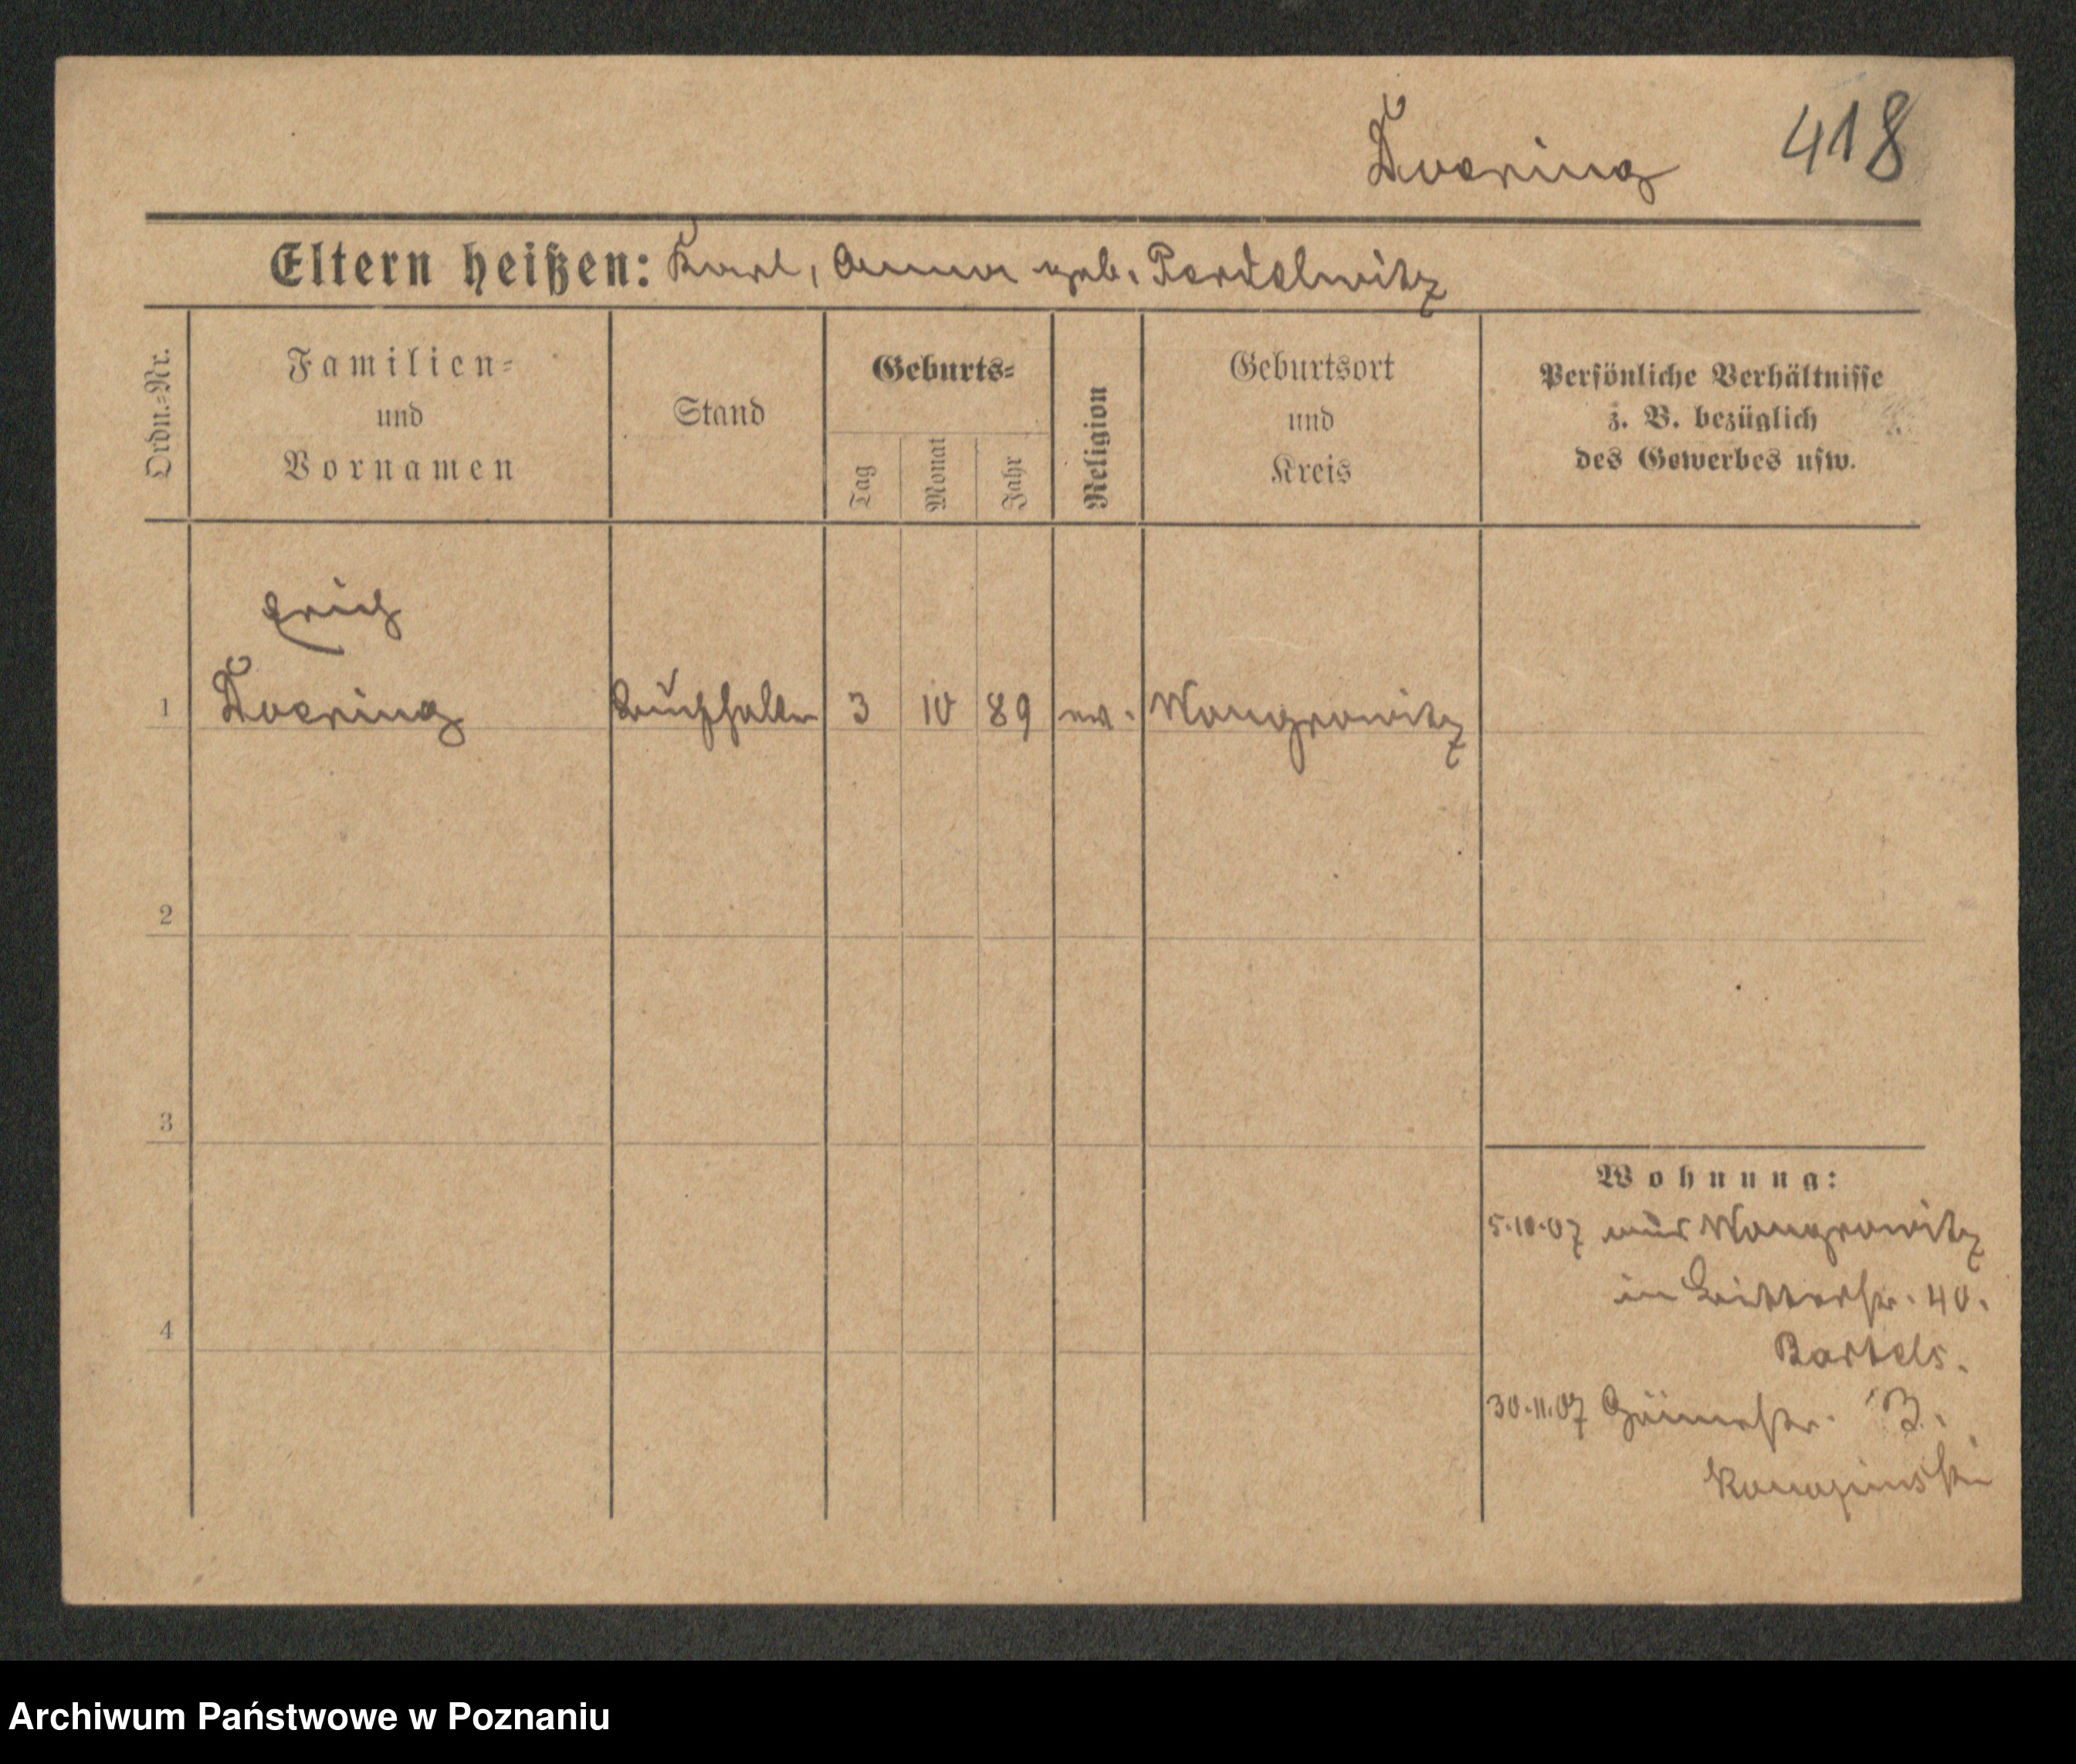 Doering 418
Eltern heißen: Karl, Anna geb. Perdelwitz
Ordn.=Nr.
Familien=
und
Vornamen
Stand
Geburts=
Tag
Monat
Jahr
Religion
Geburtsort
und
Kreis
Persönliche Verhältnisse
z. B. bezüglich
des Gewerbes usw.
Erich
1 Doering Buchhalter 3 10 89 ev. Wongrowitz
2
3
4
Wohnung:
5.10.07 aus Wongrowitz
in Ritterstr. 40.
Bartels.
30.11.07 3.
Archiwum Państwowe w Poznaniu